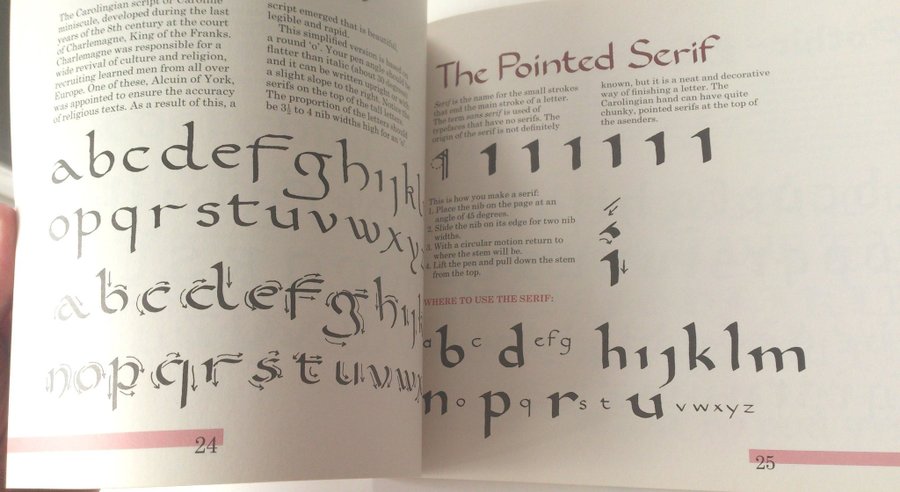 The Carolingian script or Caroline
minuscule, developed during the last
years of the 8th century at the court
of Charlemagne, King of the Franks.
Charlemagne was responsible for a
wide revival of culture and religion,
recruiting learned men from all over
Europe. One of these, Alcuin of York,
was appointed to ensure the accuracy
of religious texts. As a result of this, a
script emerged that is beautiful,
legible and rapid.
This simplified version is based on
a round 'o'. Your pen angle should be
flatter than italic (about 30 degrees)
and it can be written upright or with
a slight slope to the right. Notice the
serifs on the top of the tall letters.
The proportion of the letters should
be 3½ to 4 nib widths high for an 'o'.
abcdefghijkl
opqrstuvwxy
abcdefghij
nopqrstuvw
24
The Pointed Serif
Serif is the name for the small strokes
that end the main stroke of a letter.
The term sans serif is used of
typefaces that have no serifs. The
origin of the serif is not definitely
known, but it is a neat and decorative
way of finishing a letter. The
Carolingian hand can have quite
chunky, pointed serifs at the top of
the asenders.
This is how you make a serif:
1. Place the nib on the page at an
angle of 45 degrees.
2. Slide the nib on its edge for two nib
widths.
3. With a circular motion return to
where the stem will be.
4. Lift the pen and pull down the stem
from the top.
WHERE TO USE THE SERIF:
a b c d e f g h i j k l m
n o p q r s t u v w x y z
25